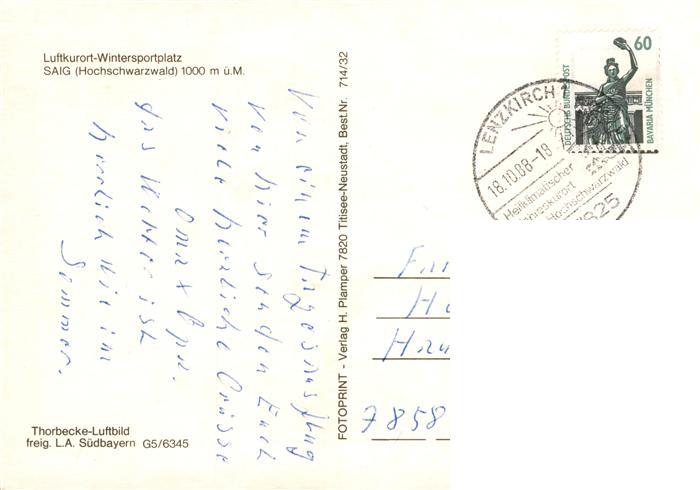 Luftkurort-Wintersportplatz
SAIG (Hochschwarzwald) 1000 m ü.M.
Von einem Tagesausflug
von hier senden Euch
viele herzliche Grüsse
Oma + Opa.
das Wetter ist
herrlich wie im
Sommer.
Thorbecke-Luftbild
freig. L.A. Südbayern G5/6345
FOTOPRINT - Verlag H. Plamper 7820 Titisee-Neustadt, Best.Nr. 714/32
60
DEUTSCHE BUNDESPOST
BAVARIA MÜNCHEN
LENZKIRCH 1
18.10.88-18
Heilklimatischer
Jahreskurort
Hochschwarzwald
7825
7858